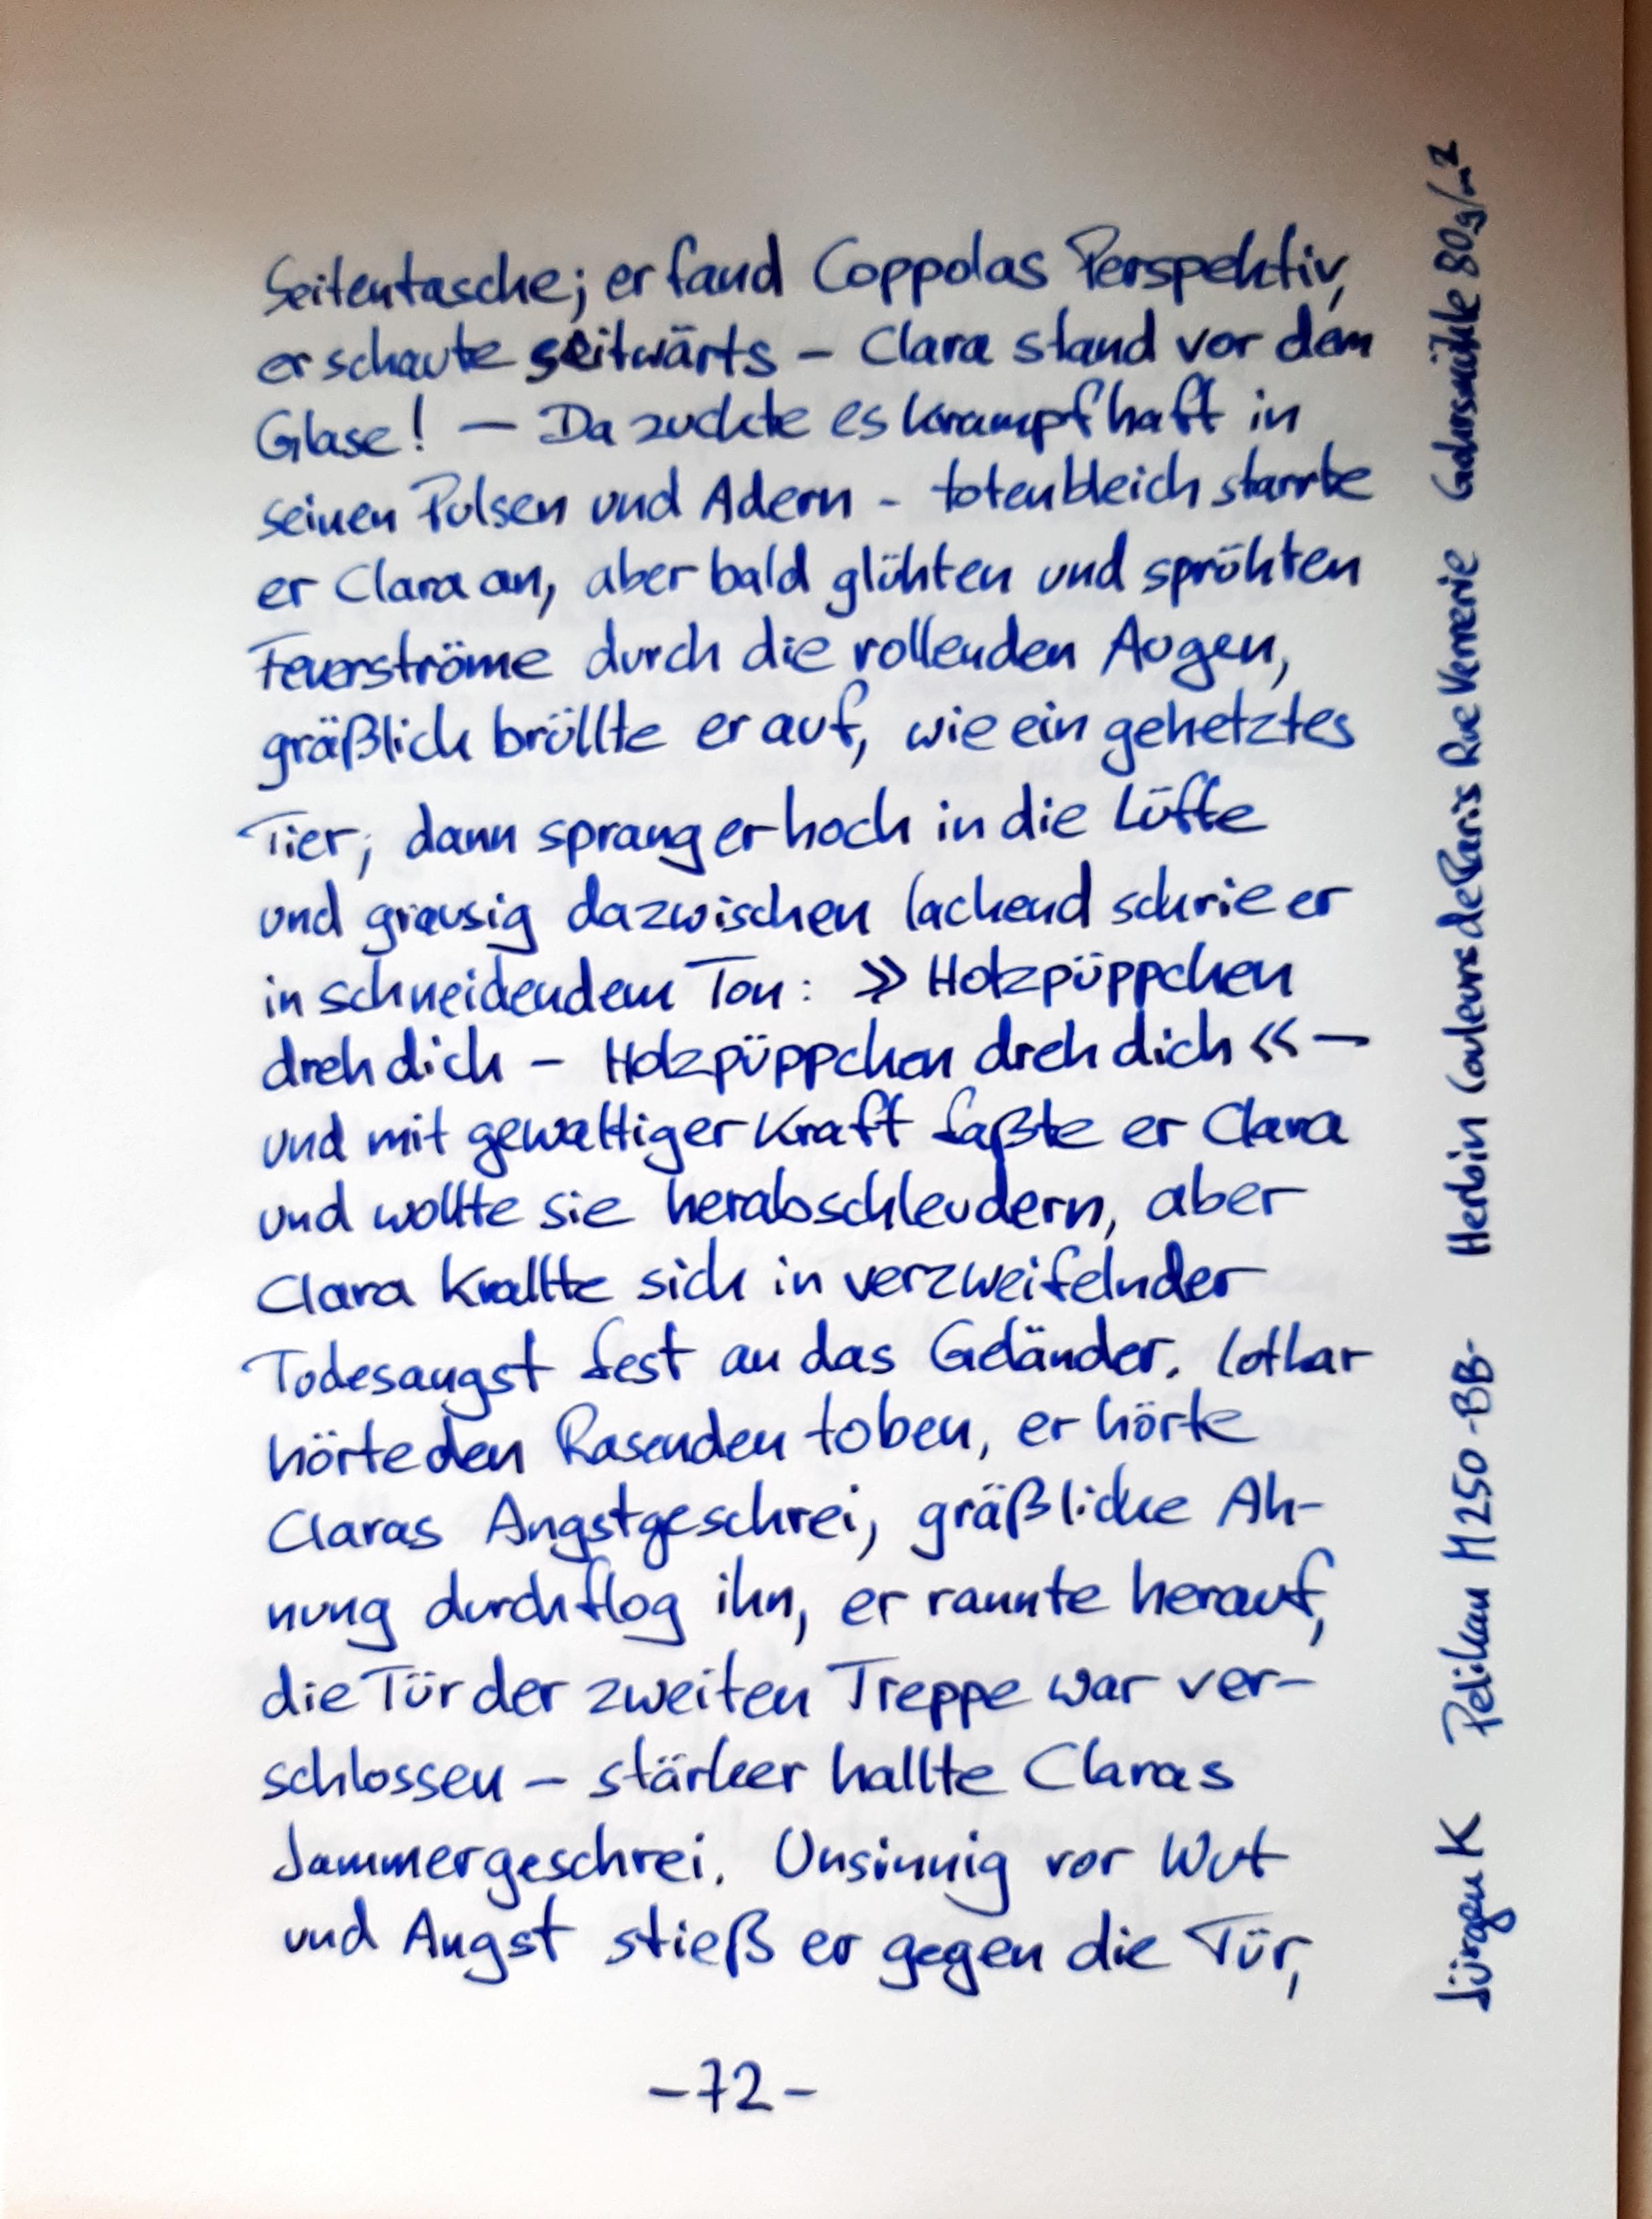 Seitentasche; er fand Coppolas Perspektiv,
er schaute seitwärts – Clara stand vor dem
Glase! – Da zuckte es krampfhaft in
seinen Pulsen und Adern – totenbleich starrte
er Clara an, aber bald glühten und sprühten
Feuerströme durch die rollenden Augen,
gräßlich brüllte er auf, wie ein gehetztes
Tier; dann sprang er hoch in die Lüfte
und grausig dazwischen lachend schrie er
in schneidendem Ton: »Holzpüppchen
dreh dich – Holzpüppchen dreh dich« –
und mit gewaltiger Kraft faßte er Clara
und wollte sie herabschleudern, aber
Clara krallte sich in verzweifelnder
Todesangst fest an das Geländer. Lothar
hörte den Rasenden toben, er hörte
Claras Angstgeschrei, gräßliche Ah-
nung durchflog ihn, er rannte herauf,
die Tür der zweiten Treppe war ver-
schlossen – stärker hallte Claras
Jammergeschrei. Unsinnig vor Wut
und Angst stieß er gegen die Tür,
–72–
Jürgen K Pelikan M250 -BB- Herbin Couleurs de Paris Rue Verrerie Gohrsmühle 80g/m²